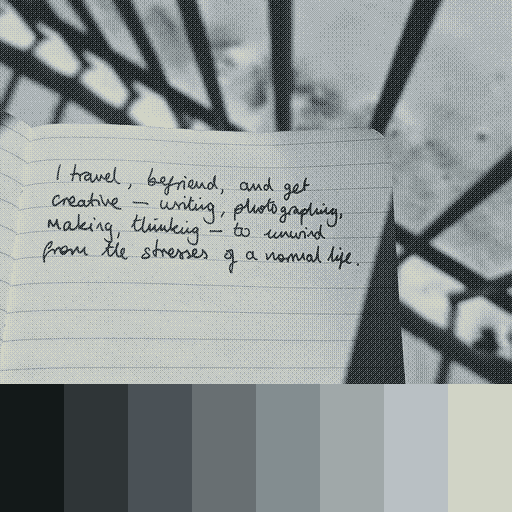 I travel, befriend, and get
creative – writing, photographing,
making, thinking – to unwind
from the stresses of a normal life.